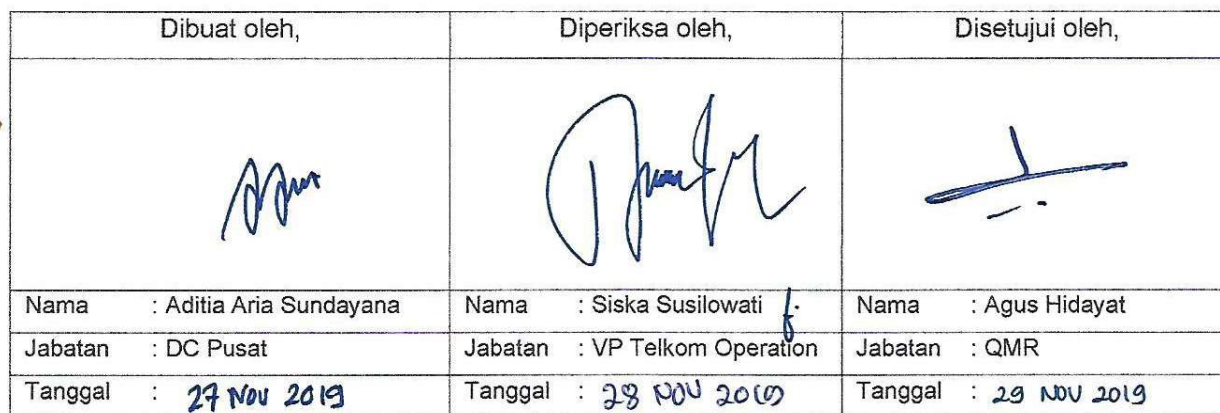 Dibuat oleh, Diperiksa oleh, Disetujui oleh,
Nama : Aditia Aria Sundayana Nama : Siska Susilowati Nama : Agus Hidayat
Jabatan : DC Pusat Jabatan : VP Telkom Operation Jabatan : QMR
Tanggal : 27 Nov 2019 Tanggal : 28 NOV 2019 Tanggal : 29 NOV 2019